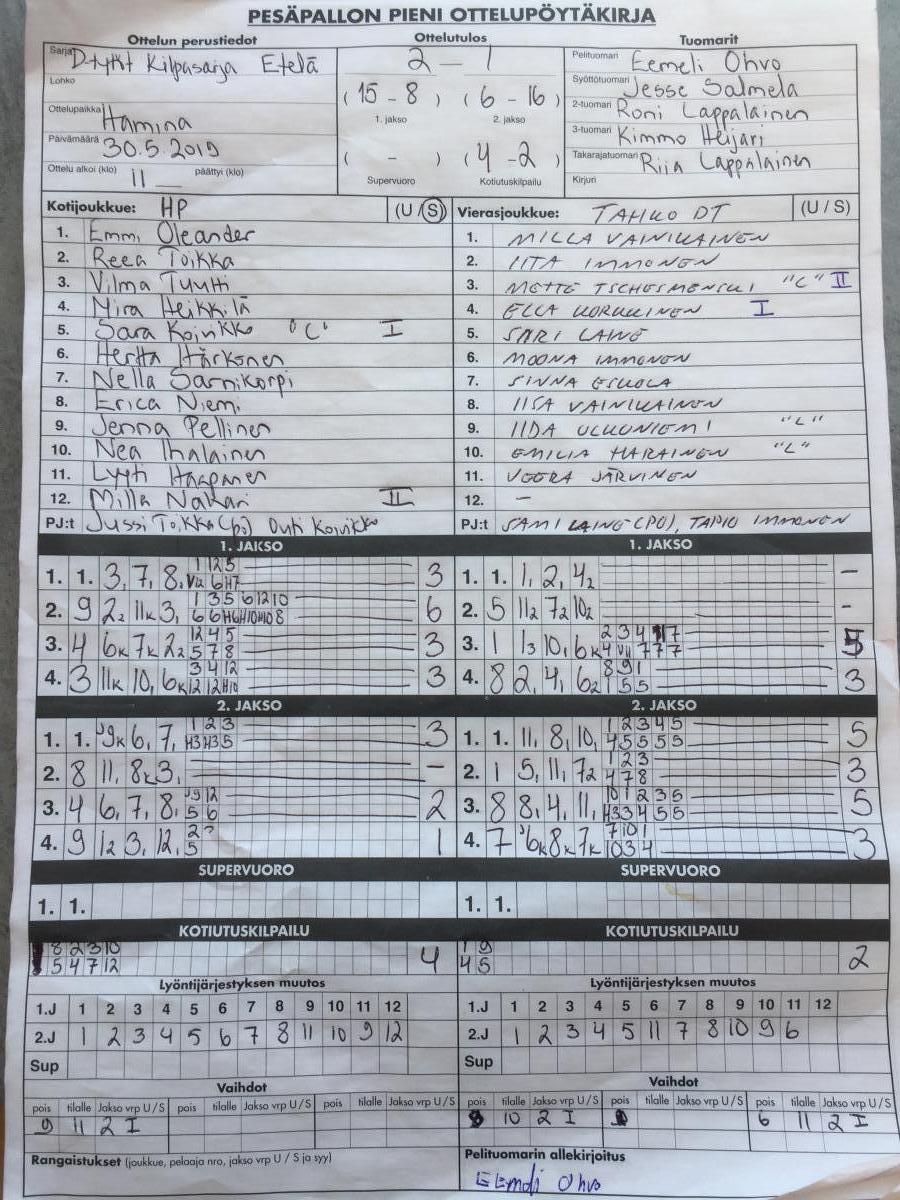 PESÄPALLON PIENI OTTELUPÖYTÄKIRJA
Ottelun perustiedot Ottelutulos Tuomarit
Sarja D-tytöt Kilpasarja Etelä
Lohko
Ottelupaikka Hamina
Päivämäärä 30.5.2019
Ottelu alkoi (klo) 11 päättyi (klo)
2 – 1
(15 - 8) (6 - 16)
1. jakso 2. jakso
( - ) (4 - 2)
Supervuoro Kotiutuskilpailu
Pelituomari Eemeli Ohvo
Syöttötuomari Jesse Salmela
2-tuomari Roni Lappalainen
3-tuomari Kimmo Heijari
Takarajatuomari Riia Lappalainen
Kirjuri
Kotijoukkue: HP (U / S)
1. Emmi Oleander
2. Reea Toikka
3. Vilma Tuutti
4. Mira Heikkilä
5. Sara Koivikko "C" I
6. Hertta Härkönen
7. Nella Sarnikorpi
8. Erica Niemi
9. Jenna Pellinen
10. Nea Ihalainen
11. Lyyti Haapanen
12. Milla Nakari II
PJ:t Jussi Toikka (pj) Outi Koivikko
Vierasjoukkue: TAHKO DT (U / S)
1. MILLA VAINIKAINEN
2. IITA IMMONEN
3. METTE TSCHESMENSKI "C" II
4. ELLA KORKKINEN I
5. SARI LAINE
6. MOONA IMMONEN
7. SINNA ESKOLA
8. IISA VAINIKAINEN
9. IIDA ULKUNIEMI "L"
10. EMILIA HARAINEN "L"
11. VEERA JÄRVINEN
12. –
PJ:t SAMI LAINE (PJ), TAPIO IMMONEN
1. JAKSO 1. JAKSO
1. 1. 3, 7, 8, 1 1 2 5 3
2. 9 2₂ 11k 3, 1 3 5 6 12 10 6
3. 4 6k 7k 2₂ 12 4 5 3
5 7 8
4. 3 11k 10, 6k 3 4 12 3
12 12 H10
1. 1. 1, 2, 4₂ –
2. 5 11₂ 7₂ 10₂ –
3. 1 1₃ 10, 6k 2 3 4 7 5
4. 8 2, 4, 6₂ 8 9 1 3
1 5 5
2. JAKSO 2. JAKSO
1. 1. 9k 6, 7, 1 2 3 3
H3 H3 5
2. 8 11, 8k 3, –
3. 4 6, 7, 8, 9 12 2
5 6
4. 9 1₂ 3, 12, 2 1
5
1. 1. 11, 8, 10, 1 2 3 4 5 5
4 5 5 5 5
2. 1 5, 11, 7₂ 1 2 3 3
4 7 8
3. 8 8, 4, 11, 10 1 2 3 5 5
H3 3 4 5 5
4. 7 6k 8k 7k 7 10 1 3
10 3 4
SUPERVUORO SUPERVUORO
1. 1. 1. 1.
KOTIUTUSKILPAILU KOTIUTUSKILPAILU
8 2 3 10 4
5 4 7 12
1 9 2
4 5
Lyöntijärjestyksen muutos Lyöntijärjestyksen muutos
1.J 1 2 3 4 5 6 7 8 9 10 11 12
2.J 1 2 3 4 5 6 7 8 11 10 9 12
Sup
1.J 1 2 3 4 5 6 7 8 9 10 11 12
2.J 1 2 3 4 5 11 7 8 10 9 6
Sup
Vaihdot Vaihdot
pois tilalle Jakso vrp U / S pois tilalle Jakso vrp U / S pois tilalle Jakso vrp U / S
9 11 2 I
pois tilalle Jakso vrp U / S pois tilalle Jakso vrp U / S pois tilalle Jakso vrp U / S
10 2 I 6 11 2 I
Rangaistukset (joukkue, pelaaja nro, jakso vrp U / S ja syy)
Pelituomarin allekirjoitus
Eemeli Ohvo